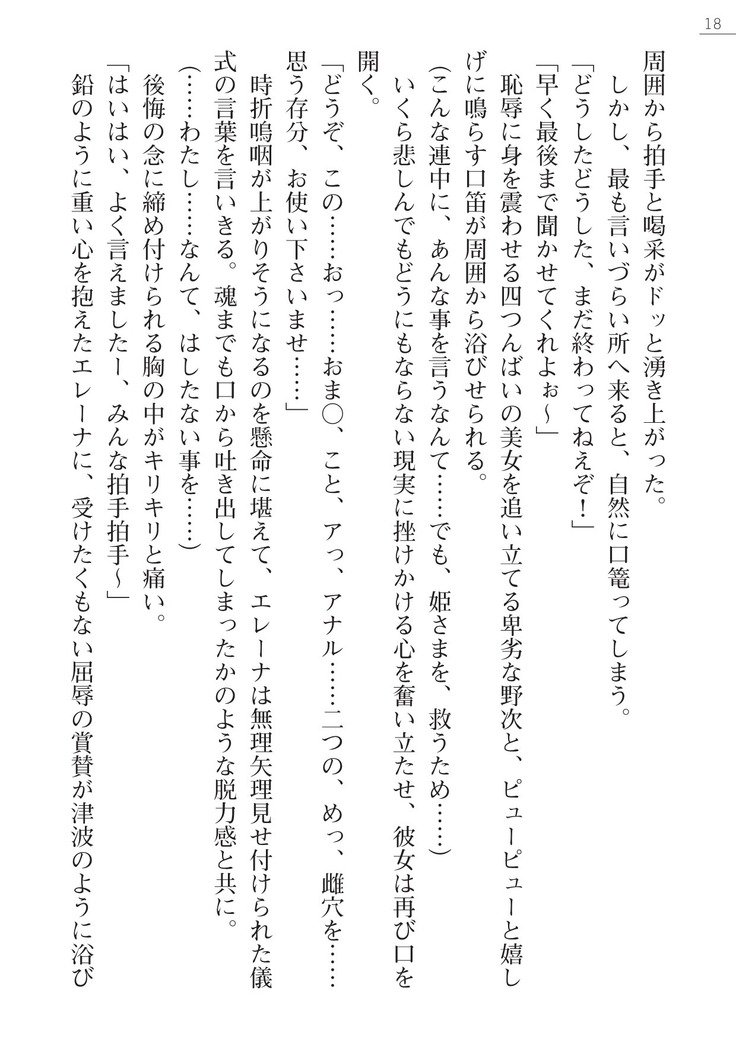 18
周囲から拍手と喝采がドッと湧き上がった。
しかし、最も言いづらい所へ来ると、自然に口篭ってしまう。
「どうしたどうした、まだ終わってねえぞ！」
「早く最後まで聞かせてくれよぉ～」
恥辱に身を震わせる四つんばいの美女を追い立てる卑劣な野次と、ピューピューと嬉し
げに鳴らす口笛が周囲から浴びせられる。
（こんな連中に、あんな事を言うなんて……でも、姫さまを、救うため……）
いくら悲しんでもどうにもならない現実に挫けかける心を奮い立たせ、彼女は再び口を
開く。
「どうぞ、この……おっ……おま〇、こと、アっ、アナル……二つの、めっ、雌穴を……
思う存分、お使い下さいませ……」
時折嗚咽が上がりそうになるのを懸命に堪えて、エレーナは無理矢理見せ付けられた儀
式の言葉を言いきる。魂までも口から吐き出してしまったかのような脱力感と共に。
（……わたし……なんて、はしたない事を……）
後悔の念に締め付けられる胸の中がキリキリと痛い。
「はいはい、よく言えましたー、みんな拍手拍手～」
鉛のように重い心を抱えたエレーナに、受けたくもない屈辱の賞賛が津波のように浴び